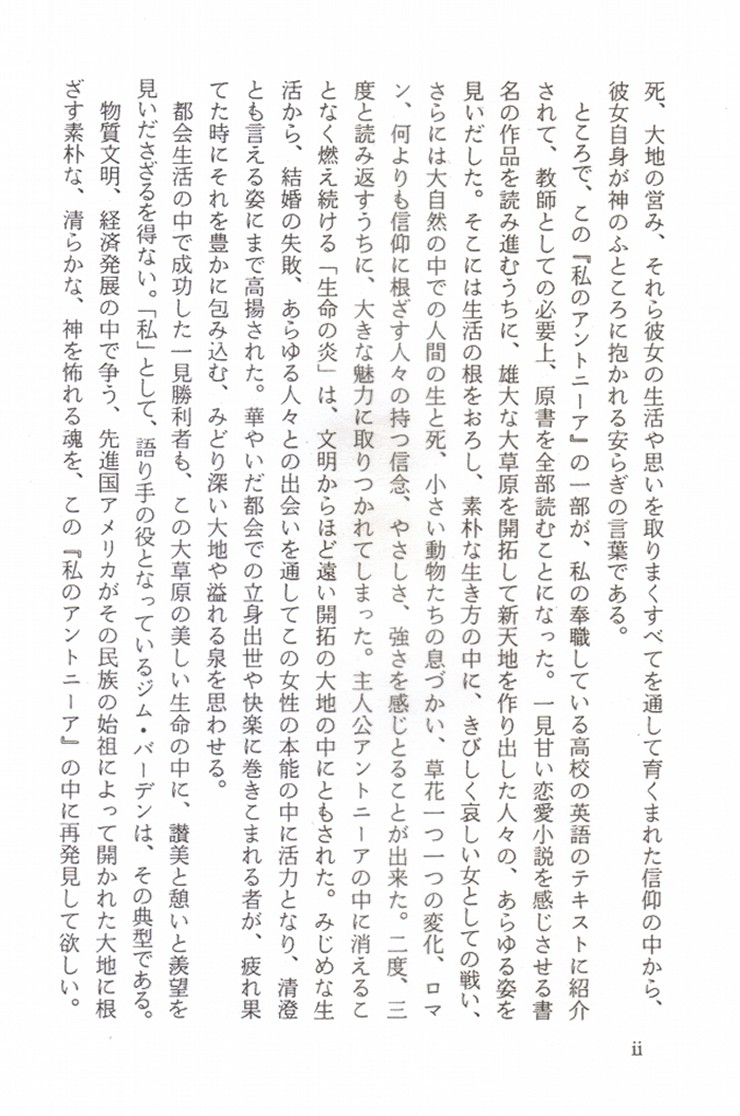 死、大地の営み、それら彼女の生活や思いを取りまくすべてを通して育くまれた信仰の中から、
彼女自身が神のふところに抱かれる安らぎの言葉である。
ところで、この『私のアントニーア』の一部が、私の奉職している高校の英語のテキストに紹介
されて、教師としての必要上、原書を全部読むことになった。一見甘い恋愛小説を感じさせる書
名の作品を読み進むうちに、雄大な大草原を開拓して新天地を作り出した人々の、あらゆる姿を
見いだした。そこには生活の根をおろし、素朴な生き方の中に、きびしく哀しい女としての戦い、
さらには大自然の中での人間の生と死、小さい動物たちの息づかい、草花一つ一つの変化、ロマ
ン、何よりも信仰に根ざす人々の持つ信念、やさしさ、強さを感じとることが出来た。二度、三
度と読み返すうちに、大きな魅力に取りつかれてしまった。主人公アントニーアの中に消えるこ
となく燃え続ける「生命の炎」は、文明からほど遠い開拓の大地の中にともされた。みじめな生
活から、結婚の失敗、あらゆる人々との出会いを通してこの女性の本能の中に活力となり、清澄
とも言える姿にまで高揚された。華やいだ都会での立身出世や快楽に巻きこまれる者が、疲れ果
てた時にそれを豊かに包み込む、みどり深い大地や溢れる泉を思わせる。
都会生活の中で成功した一見勝利者も、この大草原の美しい生命の中に、讃美と憩いと羨望を
見いださざるを得ない。「私」として、語り手の役となっているジム・バーデンは、その典型である。
物質文明、経済発展の中で争う、先進国アメリカがその民族の始祖によって開かれた大地に根
ざす素朴な、清らかな、神を怖れる魂を、この『私のアントニーア』の中に再発見して欲しい。
ii